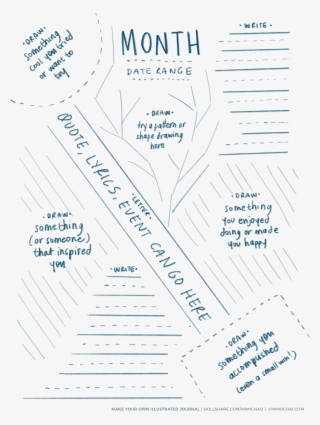 ·DRAW·
something
cool you tried
or want to
try
MONTH
DATE RANGE
·WRITE·
·DRAW·
try a pattern or
shape drawing
here
QUOTE, LYRICS, EVENT CAN GO HERE
·LETTER·
·DRAW·
something
(or someone)
that inspired
you
·DRAW·
something
you enjoyed
doing or made
you happy
·WRITE·
·DRAW·
something you
accomplished
(even a small win!)
MAKE YOUR OWN ILLUSTRATED JOURNAL | SKILLSHARE.COM/MIMICHAO |